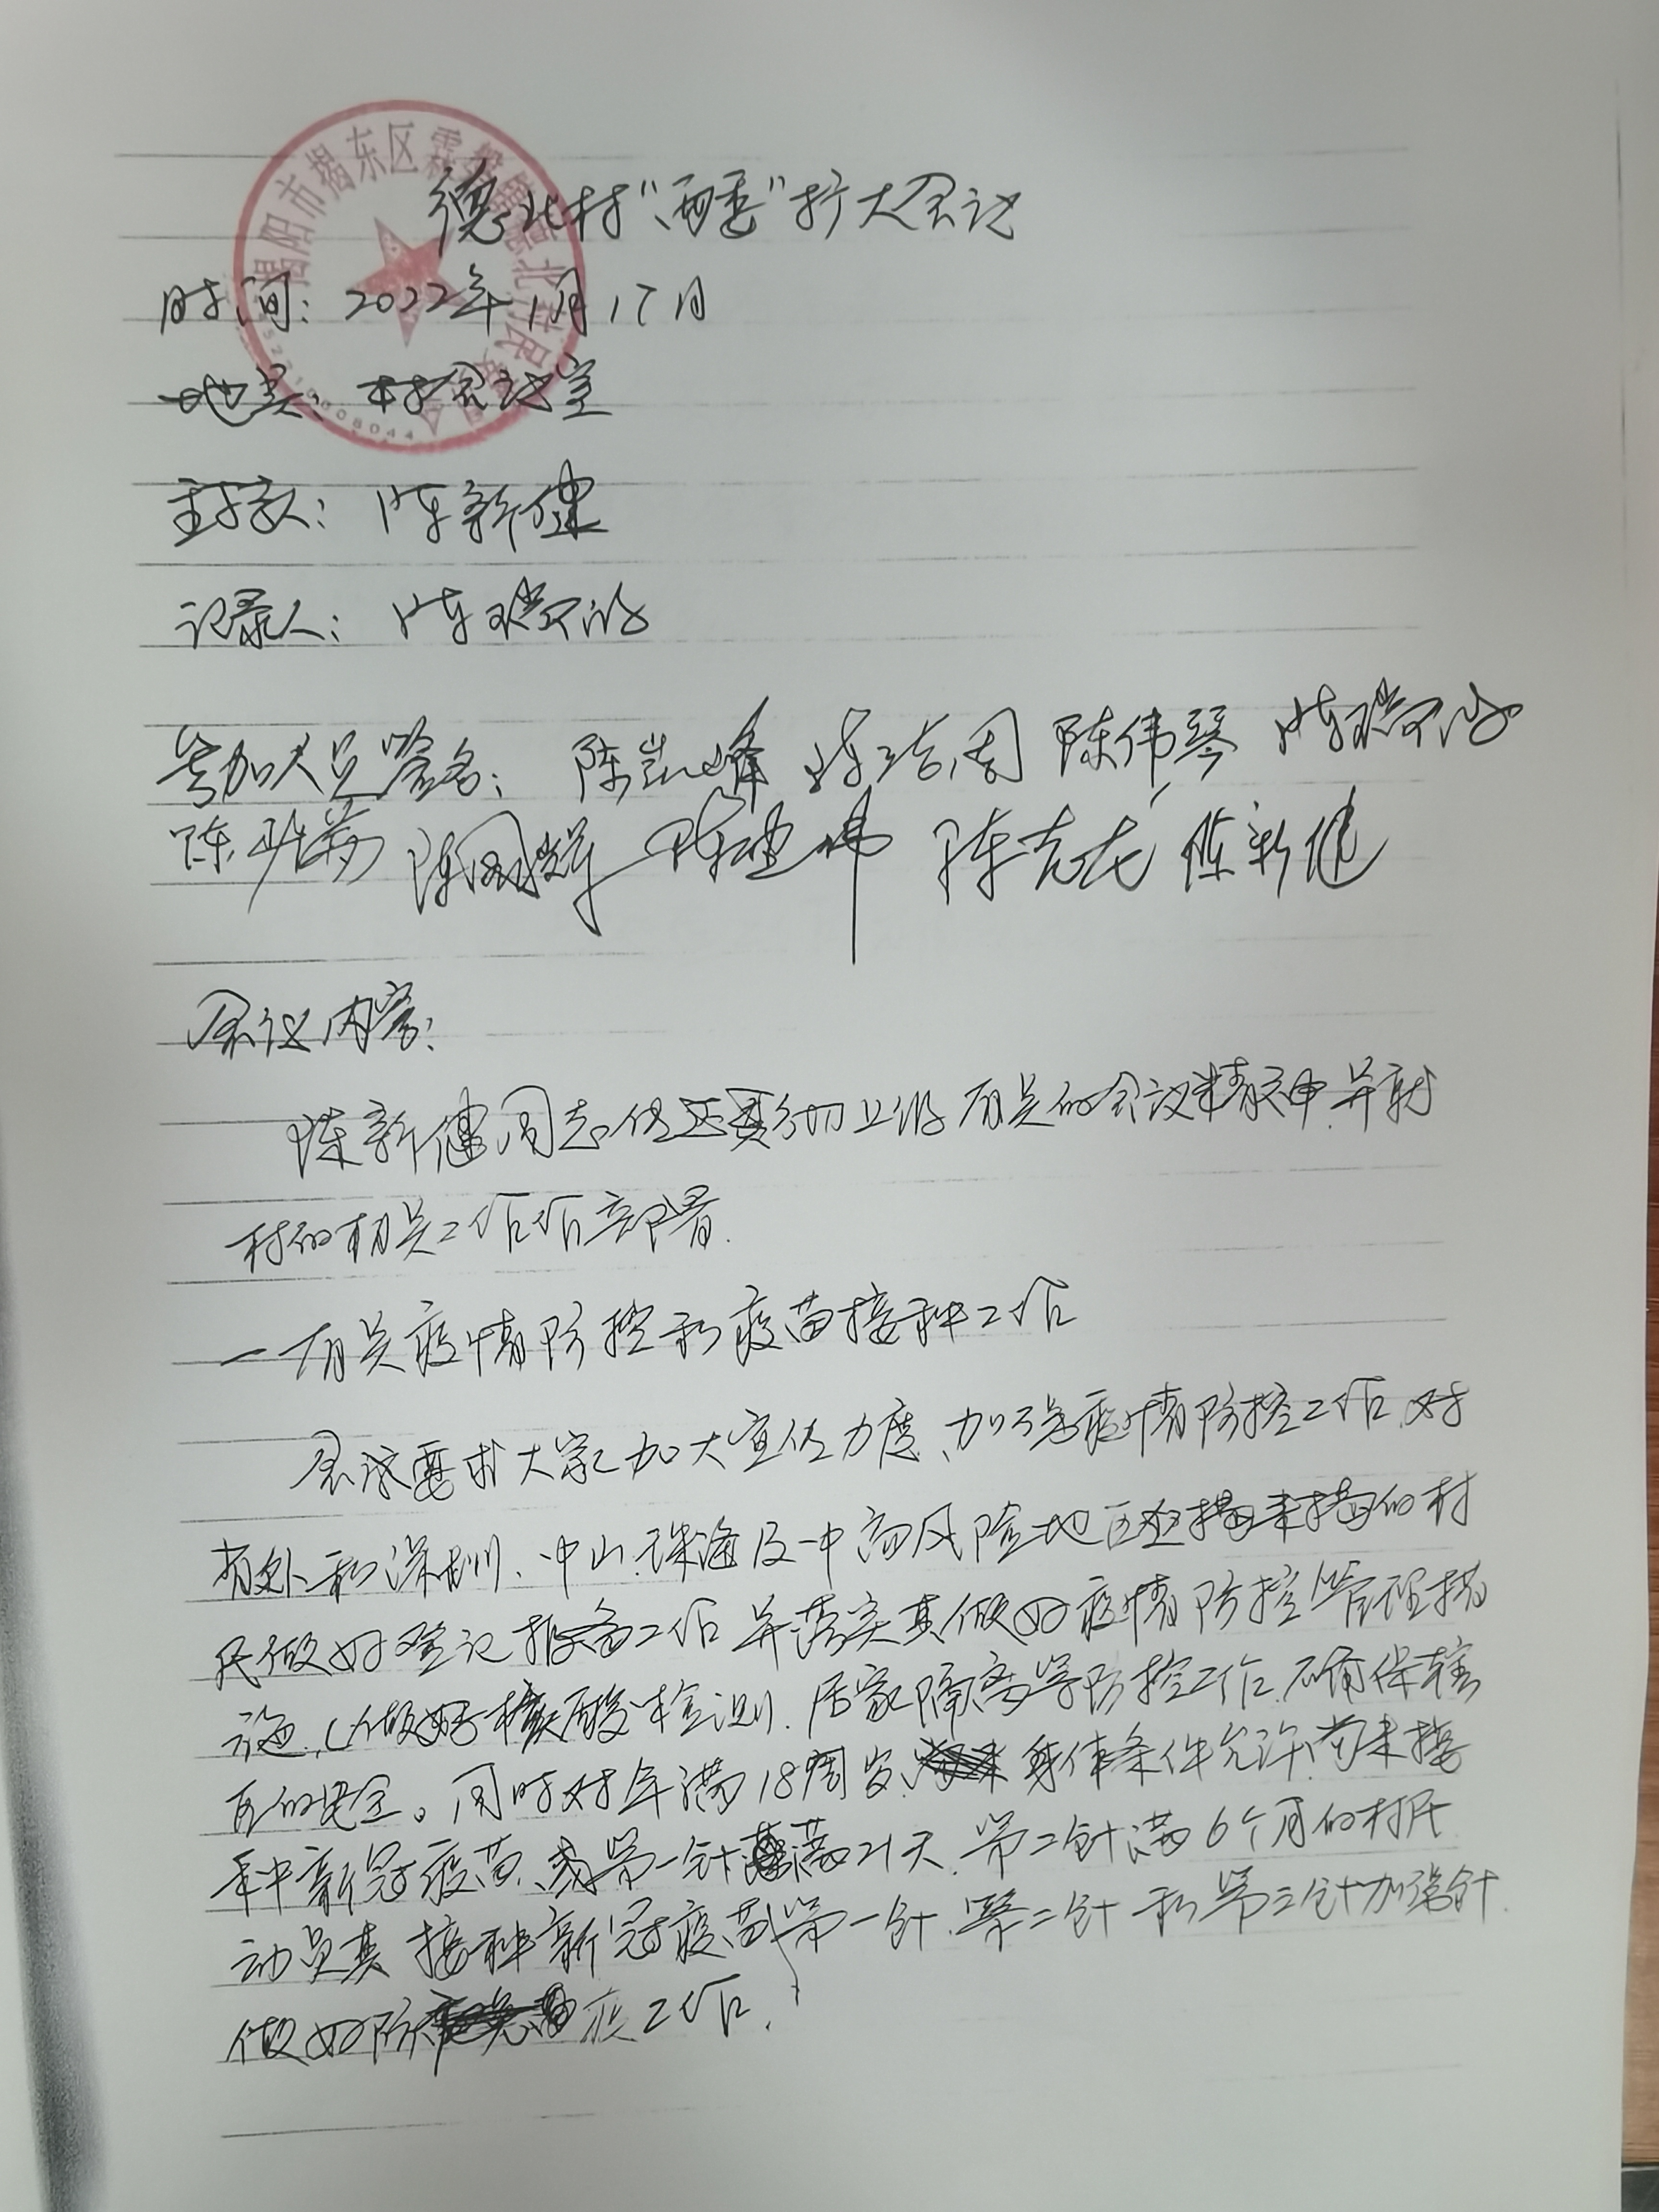 揭阳市揭东区霖磐镇德北村民委员会
德北村“两委”扩大会议
时间：2022年1月17日
地点：村会议室
主持人：陈新健
记录人：陈瑞
参加人员签名：陈凯峰 陈伟琴 陈瑞
陈 陈 陈 陈克龙 陈新健
会议内容：
陈新健同志传达上级有关的会议精神.并就
村的相关工作作部署.
一有关疫情防控和疫苗接种工作
会议要求大家加大宣传力度、加强疫情防控工作.对
省外和深圳、中山.珠海及中高风险地区的村
民做好登记报备工作并落实其做好疫情防控管理措
施.(做好核酸检测.居家隔离等防控工作.确保辖
区的安全。同时对年满18周岁、身体条件允许.尚未接
种新冠疫苗、或第一针满21天.第二针满6个月的村民
动员其接种新冠疫苗第一针.第二针和第三针加强针.
做好防疫工作.